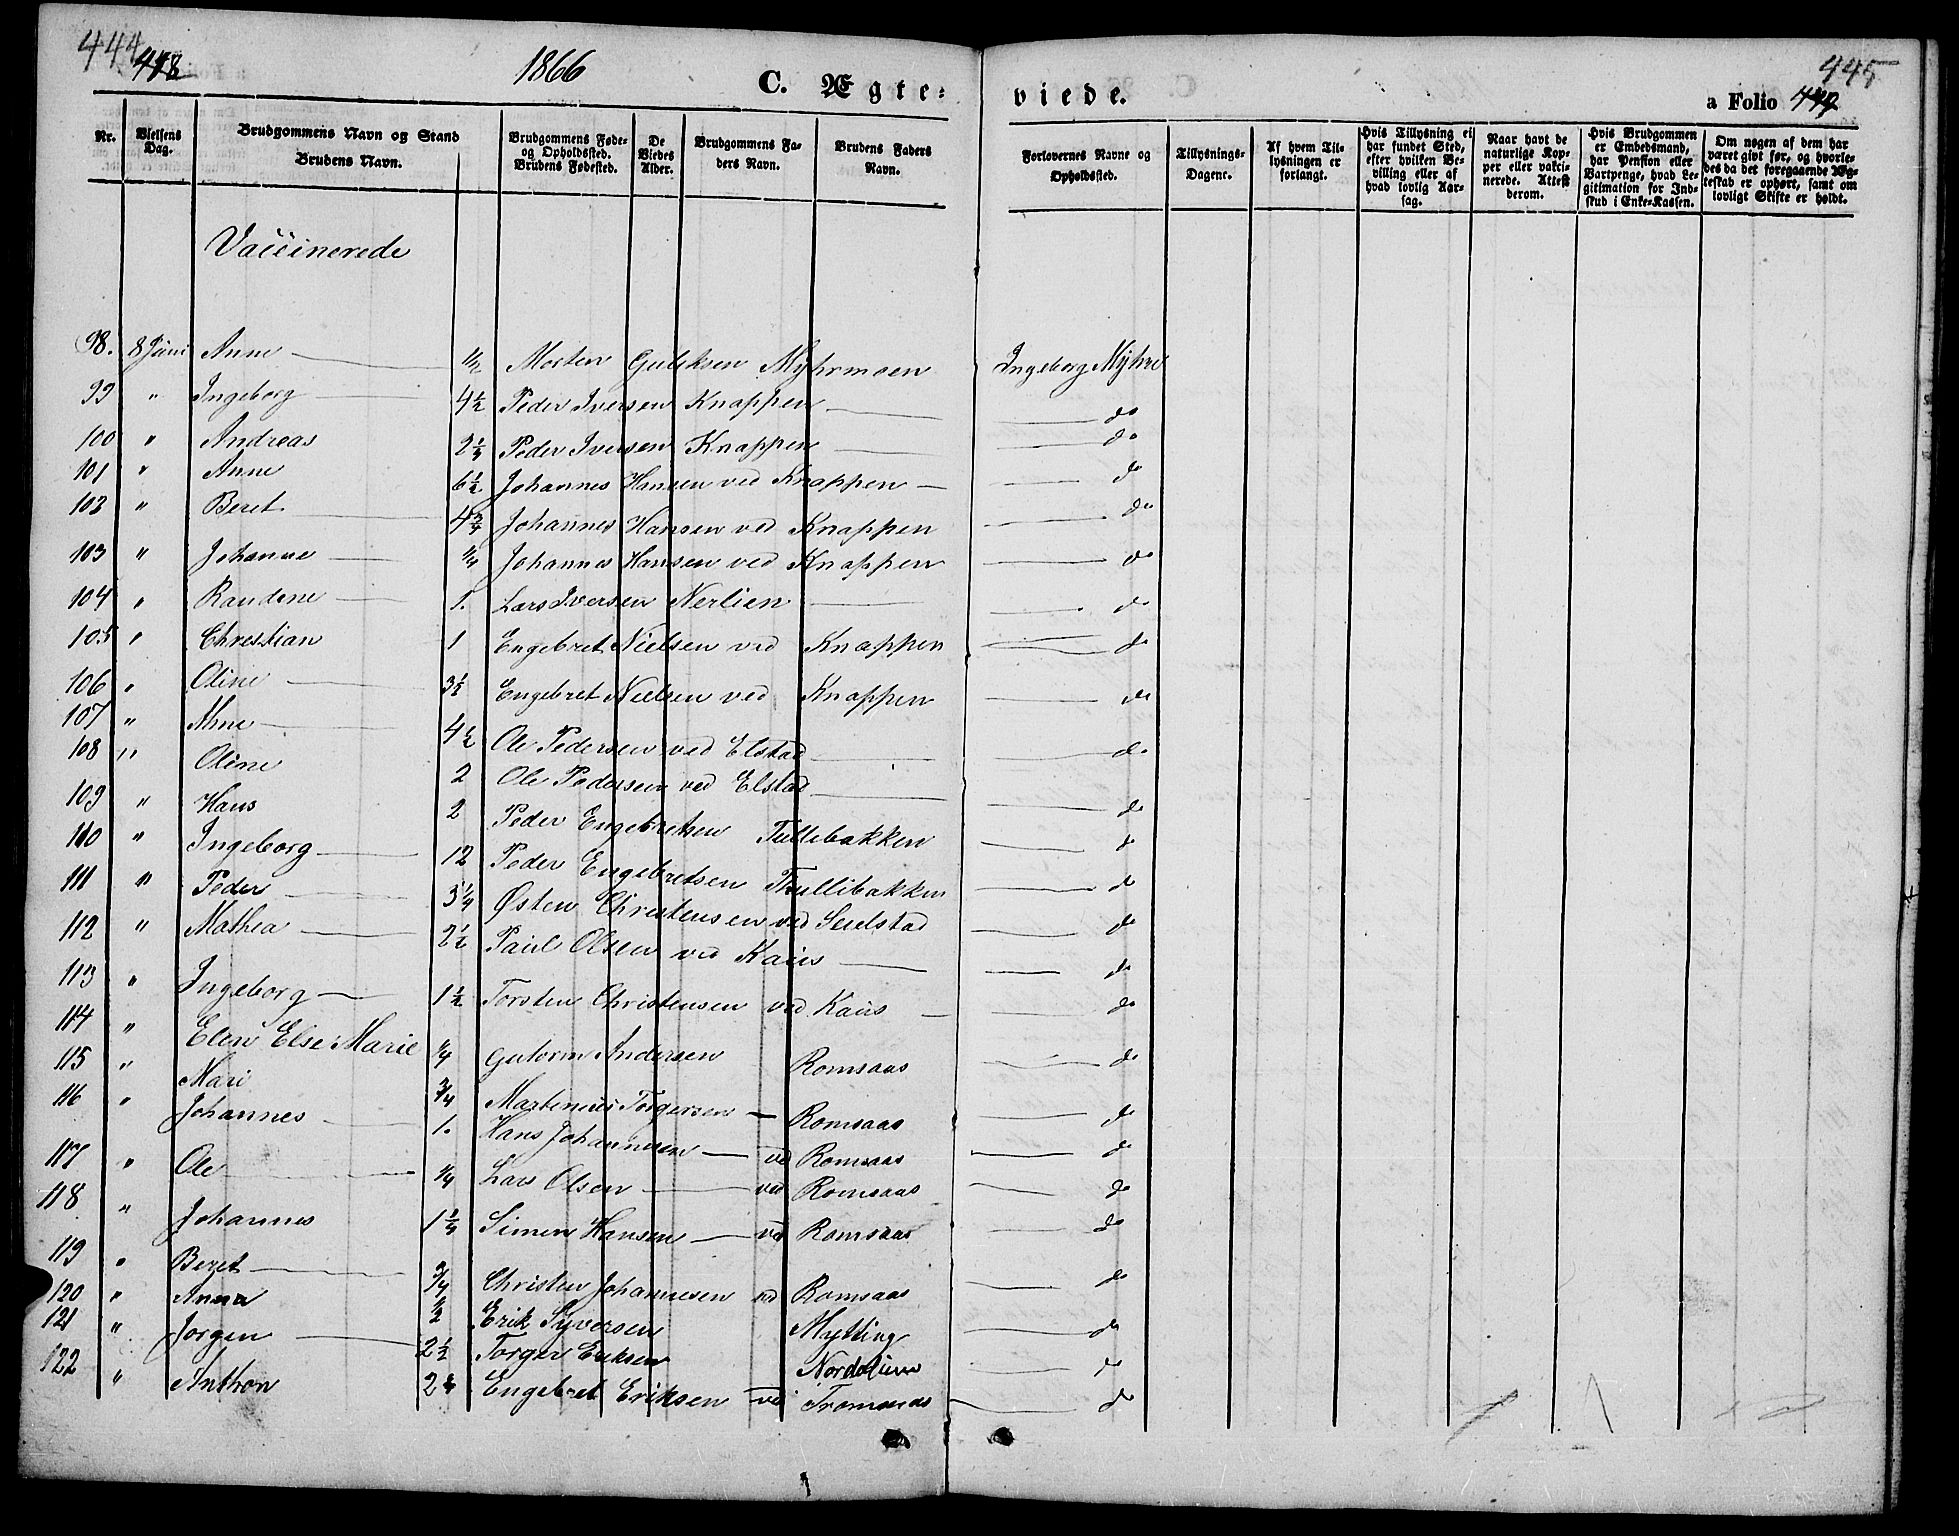 444 418 1866 C. Ægte- viede. 445
a Folio 419
Nr. Vielsens Dag. Brudgommens Navn og Stand Brudens Navn. Brudgommens Føde- og Opholdssted. Brudens Fødested. De Viedes Alder. Brudgommens Faders Navn. Brudens Faders Navn. Forlovernes Navne og Opholdssted. Tillysnings-Dagene. Af hvem Tillysningen er forlangt. Hvis Tillysning ei har fundet Sted, efter hvilken Bevilling eller af hvad lovlig Aarsag. Naar havt de naturlige Kopper eller vakcinerede. Attest derom. Hvis Brudgommen er Embedsmand, har Pension eller Vartpenge, hvad Legitimation for Indskud i Enke-Kassen. Om nogen af dem har været gift før, og hvorledes da det foregaaende Ægteskab er ophørt, samt om lovligt Skifte er holdt.
Vaccinerede
98. 8 Juni Anne 1/2 Morten Guliksen Myhrmoen Ingeborg Myhre
99 " Ingeborg 4 1/2 Peder Iversen Knappen do
100 " Andreas 2 1/4 Peder Iversen Knappen do
101 " Anne 6 1/2 Johannes Hansen ved Knappen do
102 " Beret 4 3/4 Johannes Hansen ved Knappen do
103 " Johanne 1/4 Johannes Hansen ved Knappen do
104 " Randine 1. Lars Iversen Nerlien do
105 " Christian 1 Engebret Nielsen ved Knappen do
106 " Oline 3 1/2 Engebret Nielsen ved Knappen do
107 " Anne 4 1/2 Ole Pedersen ved Elstad do
108 " Oline 2 Ole Pedersen ved Elstad
109 " Hans 2 Peder Engebretsen Tullibakken do
110 " Ingeborg 12 Peder Engebretsen Thullibakken do
111 " Peder 3 1/4 Østen Christensen ved Seielstad do
112 " Mathea 2 1/2 Paul Olsen ved Kaus do
113 " Ingeborg 1 1/2 Torsten Christensen ved Kaus do
114 " Elen Else Marie 1/4 Gutorm Andersen Romsaas do
115 " Mari 3/4 Martenius Torgersen Romsaas do
116 " Johannes 1. Hans Johannesen ved Romsaas do
117 " Ole 1/4 Lars Olsen ved Romsaas do
118 " Johannes 1 1/4 Simen Hansen ved Romsaas do
119 " Beret 3/4 Christen Johannesen ved Romsaas do
120 " Anna 1/2 Erik Syversen Mytting do
121 " Jørgen 2 1/2 Torger Eriksen do
122 " Anthon 2 Engebret Eriksen ved Tromsnæs do